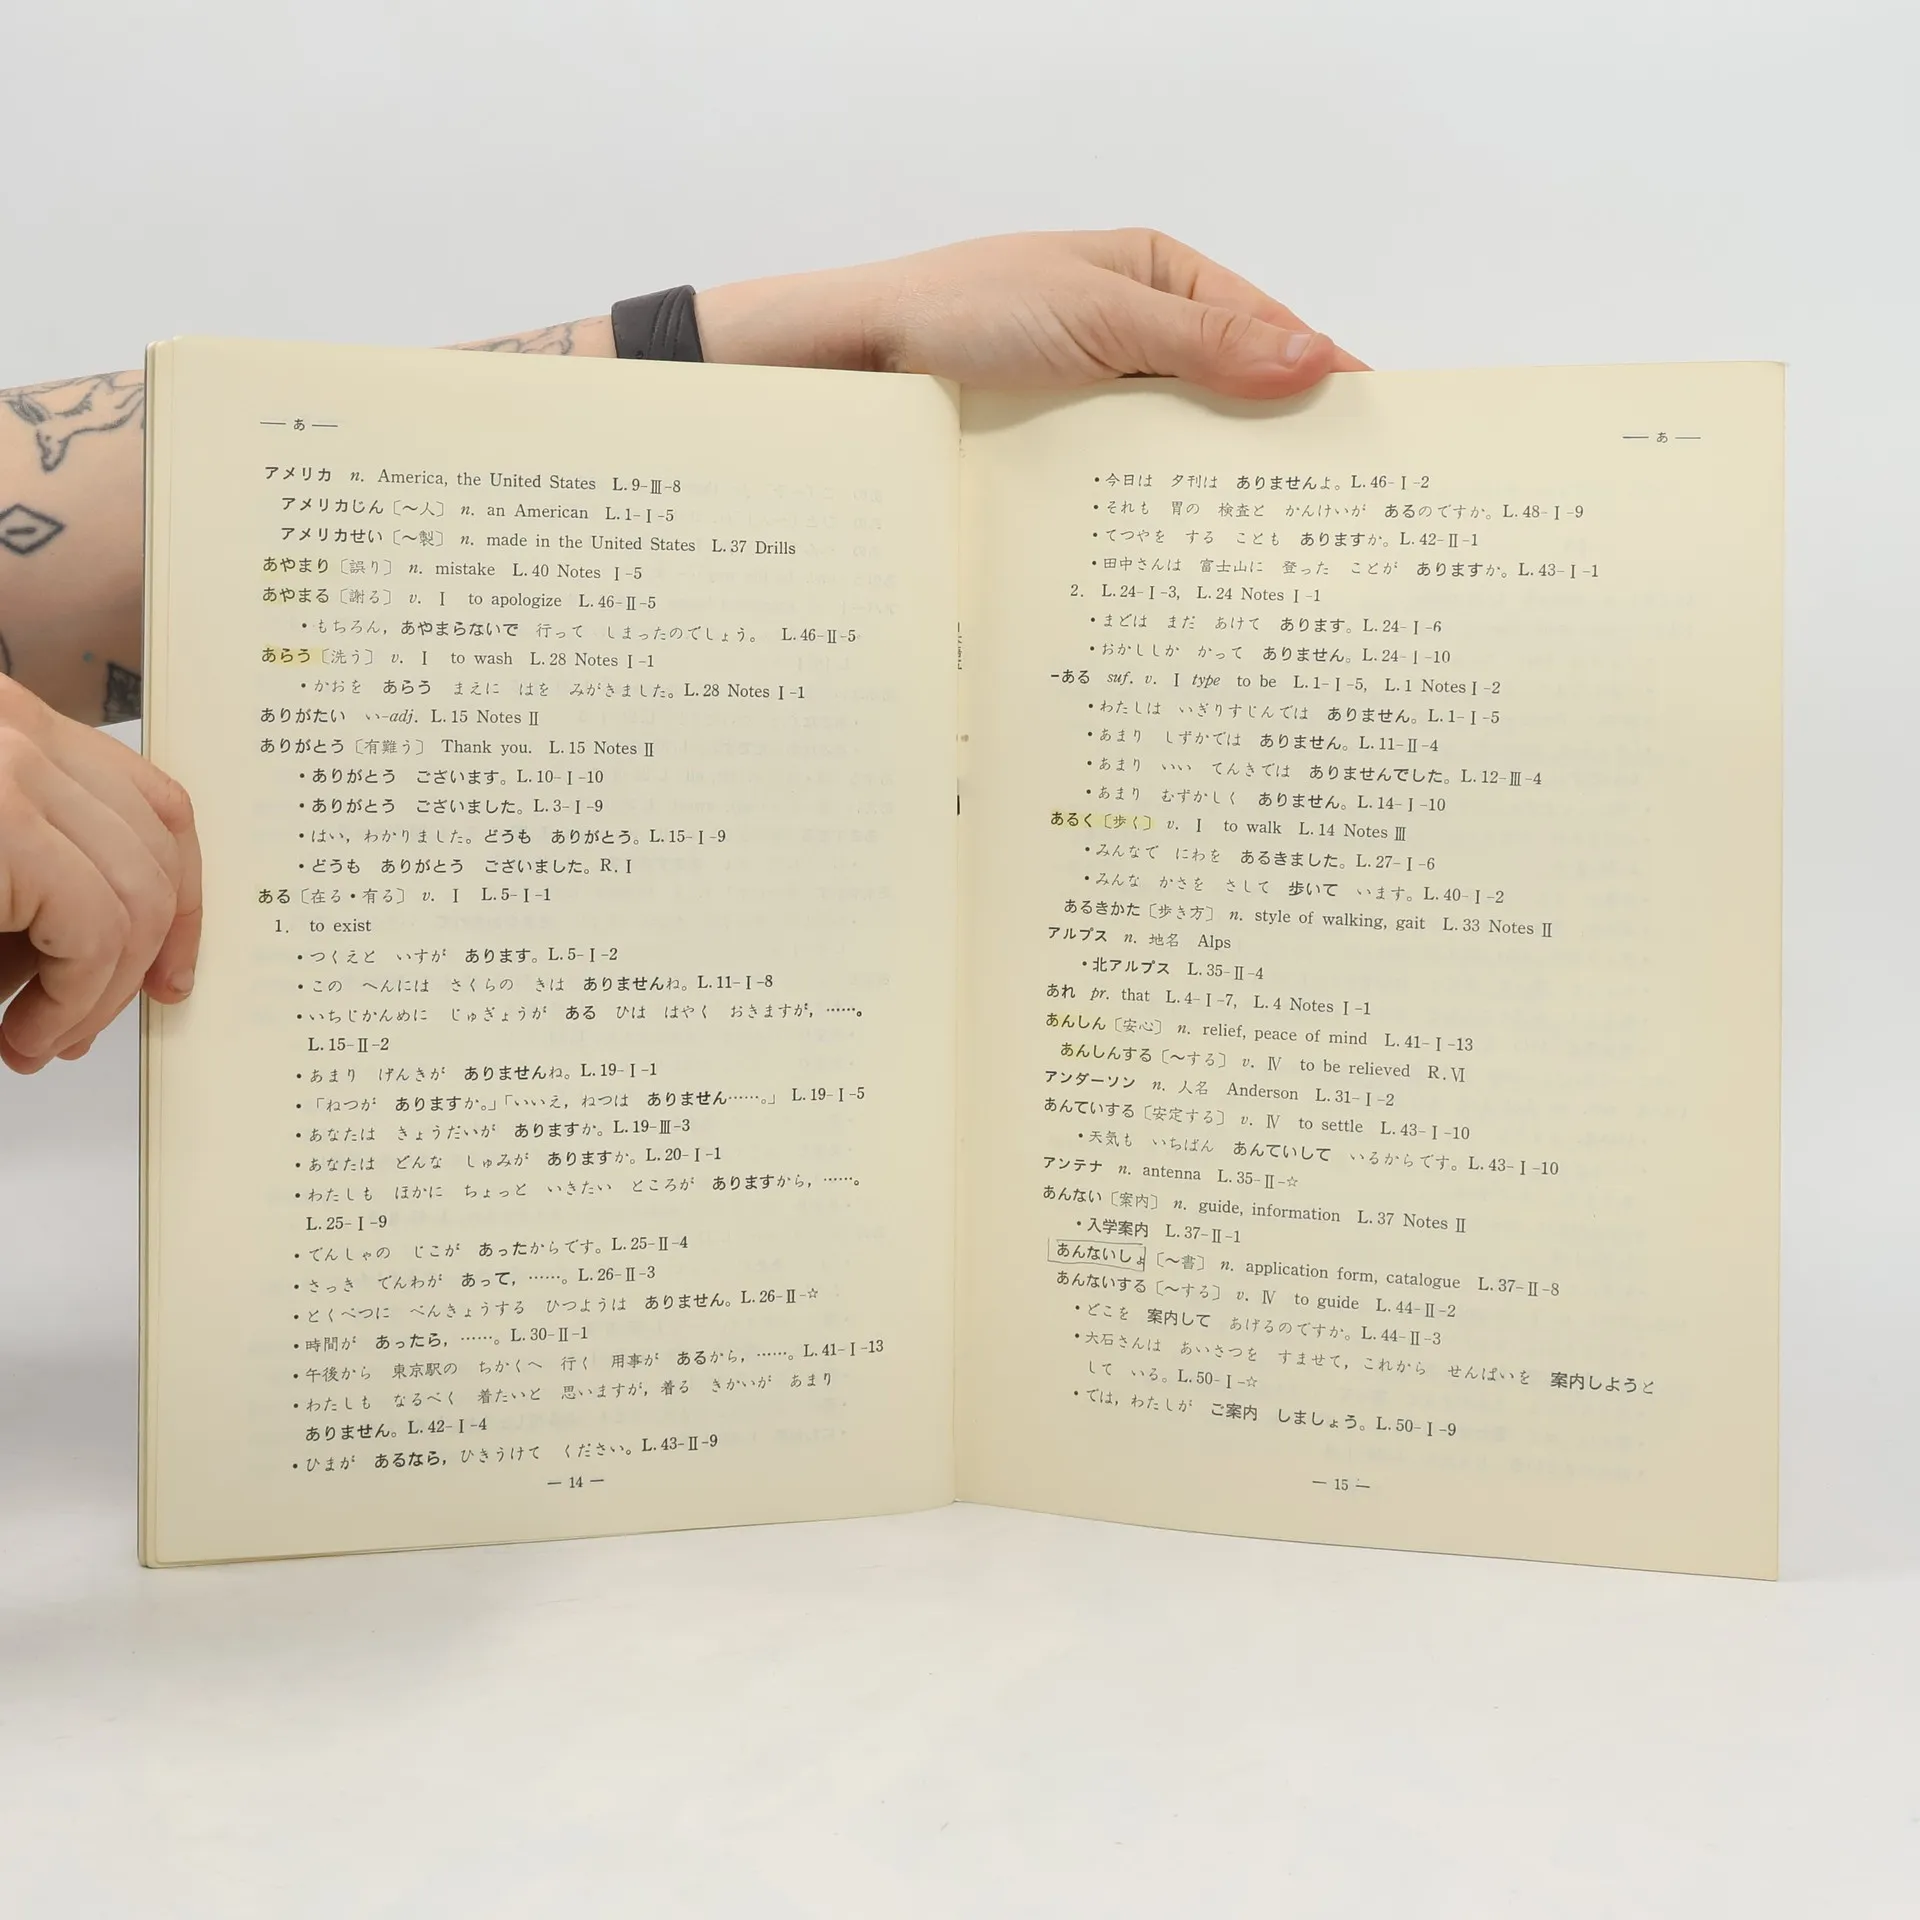 — あ —
アメリカ n. America, the United States L.9-Ⅲ-8
アメリカじん〔～人〕 n. an American L.1-Ⅰ-5
アメリカせい〔～製〕 n. made in the United States L.37 Drills
あやまり〔誤り〕 n. mistake L.40 Notes Ⅰ-5
あやまる〔謝る〕 v. Ⅰ to apologize L.46-Ⅱ-5
・もちろん，あやまらないで 行って しまったのでしょう。 L.46-Ⅱ-5
あらう〔洗う〕 v. Ⅰ to wash L.28 Notes Ⅰ-1
・かおを あらう まえに はを みがきました。L.28 Notes Ⅰ-1
ありがたい い-adj. L.15 Notes Ⅱ
ありがとう〔有難う〕 Thank you. L.15 Notes Ⅱ
・ありがとう ございます。L.10-Ⅰ-10
・ありがとう ございました。L.3-Ⅰ-9
・はい，わかりました。どうも ありがとう。L.15-Ⅰ-9
・どうも ありがとう ございました。R.Ⅰ
ある〔在る・有る〕 v. Ⅰ L.5-Ⅰ-1
1. to exist
・つくえと いすが あります。L.5-Ⅰ-2
・この へんには さくらの きは ありませんね。L.11-Ⅰ-8
・いちじかんめに じゅぎょうが ある ひは はやく おきますが，……。
L.15-Ⅱ-2
・あまり げんきが ありませんね。L.19-Ⅰ-1
・「ねつが ありますか。」「いいえ，ねつは ありません……。」 L.19-Ⅰ-5
・あなたは きょうだいが ありますか。L.19-Ⅲ-3
・あなたは どんな しゅみが ありますか。L.20-Ⅰ-1
・わたしも ほかに ちょっと いきたい ところが ありますから，……。
L.25-Ⅰ-9
・でんしゃの じこが あったからです。L.25-Ⅱ-4
・さっき でんわが あって，……。L.26-Ⅱ-3
・とくべつに べんきょうする ひつようは ありません。L.26-Ⅱ-☆
・時間が あったら，……。L.30-Ⅱ-1
・午後から 東京駅の ちかくへ 行く 用事が あるから，……。L.41-Ⅰ-13
・わたしも なるべく 着たいと 思いますが，着る きかいが あまり
ありません。L.42-Ⅰ-4
・ひまが あるなら，ひきうけて ください。L.43-Ⅱ-9
— 14 —
— あ —
・今日は 夕刊は ありませんよ。L.46-Ⅰ-2
・それも 胃の 検査と かんけいが あるのですか。L.48-Ⅰ-9
・てつやを する ことも ありますか。L.42-Ⅱ-1
・田中さんは 富士山に 登った ことが ありますか。L.43-Ⅰ-1
2. L.24-Ⅰ-3, L.24 Notes Ⅰ-1
・まどは まだ あけて あります。L.24-Ⅰ-6
・おかししか かって ありません。L.24-Ⅰ-10
-ある suf. v. Ⅰ type to be L.1-Ⅰ-5, L.1 Notes Ⅰ-2
・わたしは いぎりすじんでは ありません。L.1-Ⅰ-5
・あまり しずかでは ありません。L.11-Ⅱ-4
・あまり いい てんきでは ありませんでした。L.12-Ⅲ-4
・あまり むずかしく ありません。L.14-Ⅰ-10
あるく〔歩く〕 v. Ⅰ to walk L.14 Notes Ⅲ
・みんなで にわを あるきました。L.27-Ⅰ-6
・みんな かさを さして 歩いて います。L.40-Ⅰ-2
あるきかた〔歩き方〕 n. style of walking, gait L.33 Notes Ⅱ
アルプス n. 地名 Alps
・北アルプス L.35-Ⅱ-4
あれ pr. that L.4-Ⅰ-7, L.4 Notes Ⅰ-1
あんしん〔安心〕 n. relief, peace of mind L.41-Ⅰ-13
あんしんする〔～する〕 v. Ⅳ to be relieved R.Ⅵ
アンダーソン n. 人名 Anderson L.31-Ⅰ-2
あんていする〔安定する〕 v. Ⅳ to settle L.43-Ⅰ-10
・天気も いちばん あんていして いるからです。L.43-Ⅰ-10
アンテナ n. antenna L.35-Ⅱ-☆
あんない〔案内〕 n. guide, information L.37 Notes Ⅱ
・入学案内 L.37-Ⅱ-1
あんないしょ〔～書〕 n. application form, catalogue L.37-Ⅱ-8
あんないする〔～する〕 v. Ⅳ to guide L.44-Ⅱ-2
・どこを 案内して あげるのですか。L.44-Ⅱ-3
・大石さんは あいさつを すませて，これから せんぱいを 案内しようと
して いる。L.50-Ⅰ-☆
・では，わたしが ご案内 しましょう。L.50-Ⅰ-9
— 15 —